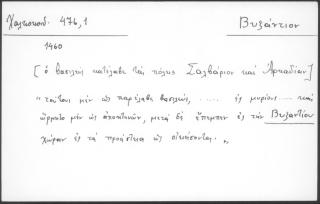 Χαλκοκονδ. 476,1 Βυζάντιον
1460
[ ὁ βασιλεὺς κατέλαβε τὰς πόλεις Σαλβάριον καὶ Ἀρκαδίαν ]
"τούτους μὲν ὡς παρέλαβε βασιλεύς, ..... ἐς μυρίους ..... καὶ
ὥρμητο μὲν ὡς ἀποκτενῶν, μετὰ δὲ ἔπεμπεν ἐς τὴν Βυζαντίου
χώραν ἐς τὰ προάστεια ὡς οἰκήσοντας."